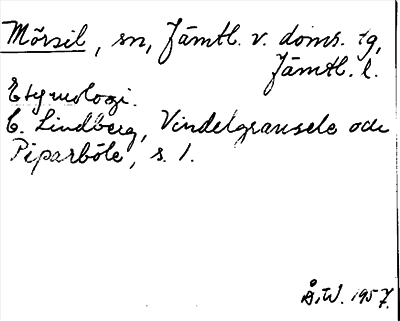 Mörsil, sn, Jämtl. v. doms. tg,
Jämtl. l.
Etymologi.
C. Lindberg, Vindelgransele och
Piparböle, s. 1.
Å.W. 1957.